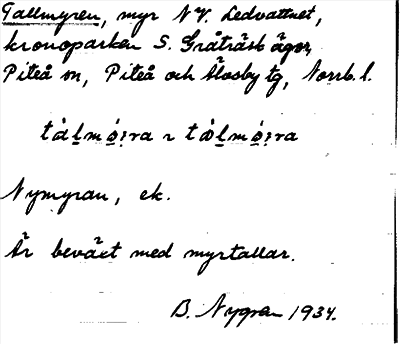 Tallmyren, myr N.V. Ledvattnet,
kronoparken S. Gråträsk ägor,
Piteå sn, Piteå och Älvsby tg, Norrb. l.
Nymyran, ek.
Är beväxt med myrtallar.
B. Nygren 1934.